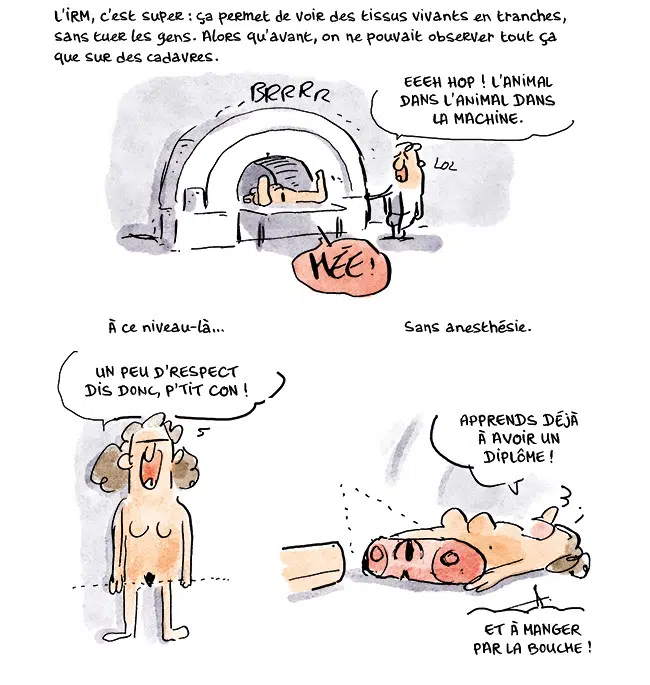 L'IRM, c'est super : ça permet de voir des tissus vivants en tranches,
sans tuer les gens. Alors qu'avant, on ne pouvait observer tout ça
que sur des cadavres.
BRRRR
EEEH HOP ! L'ANIMAL
DANS L'ANIMAL DANS
LA MACHINE.
LOL
MÉE !
À ce niveau-là...
Sans anesthésie.
UN PEU D'RESPECT
DIS DONC, P'TIT CON !
APPRENDS DÉJÀ
À AVOIR UN
DIPLÔME !
ET À MANGER
PAR LA BOUCHE !